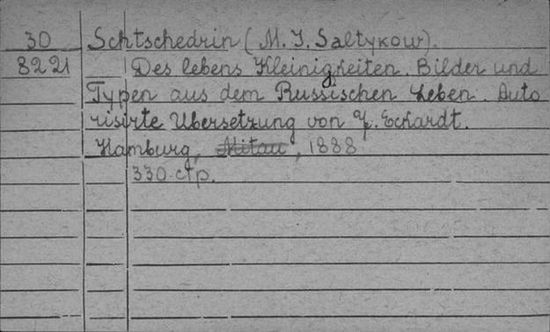 30 Schtschedrin (M. J. Saltykow).
8221 Des lebens Kleinigkeiten. Bilder und
Typen aus dem Russischen Leben. Auto
risirte Ubersetzung von J. Eckardt.
Hamburg, Mitau, 1888
330 стр.